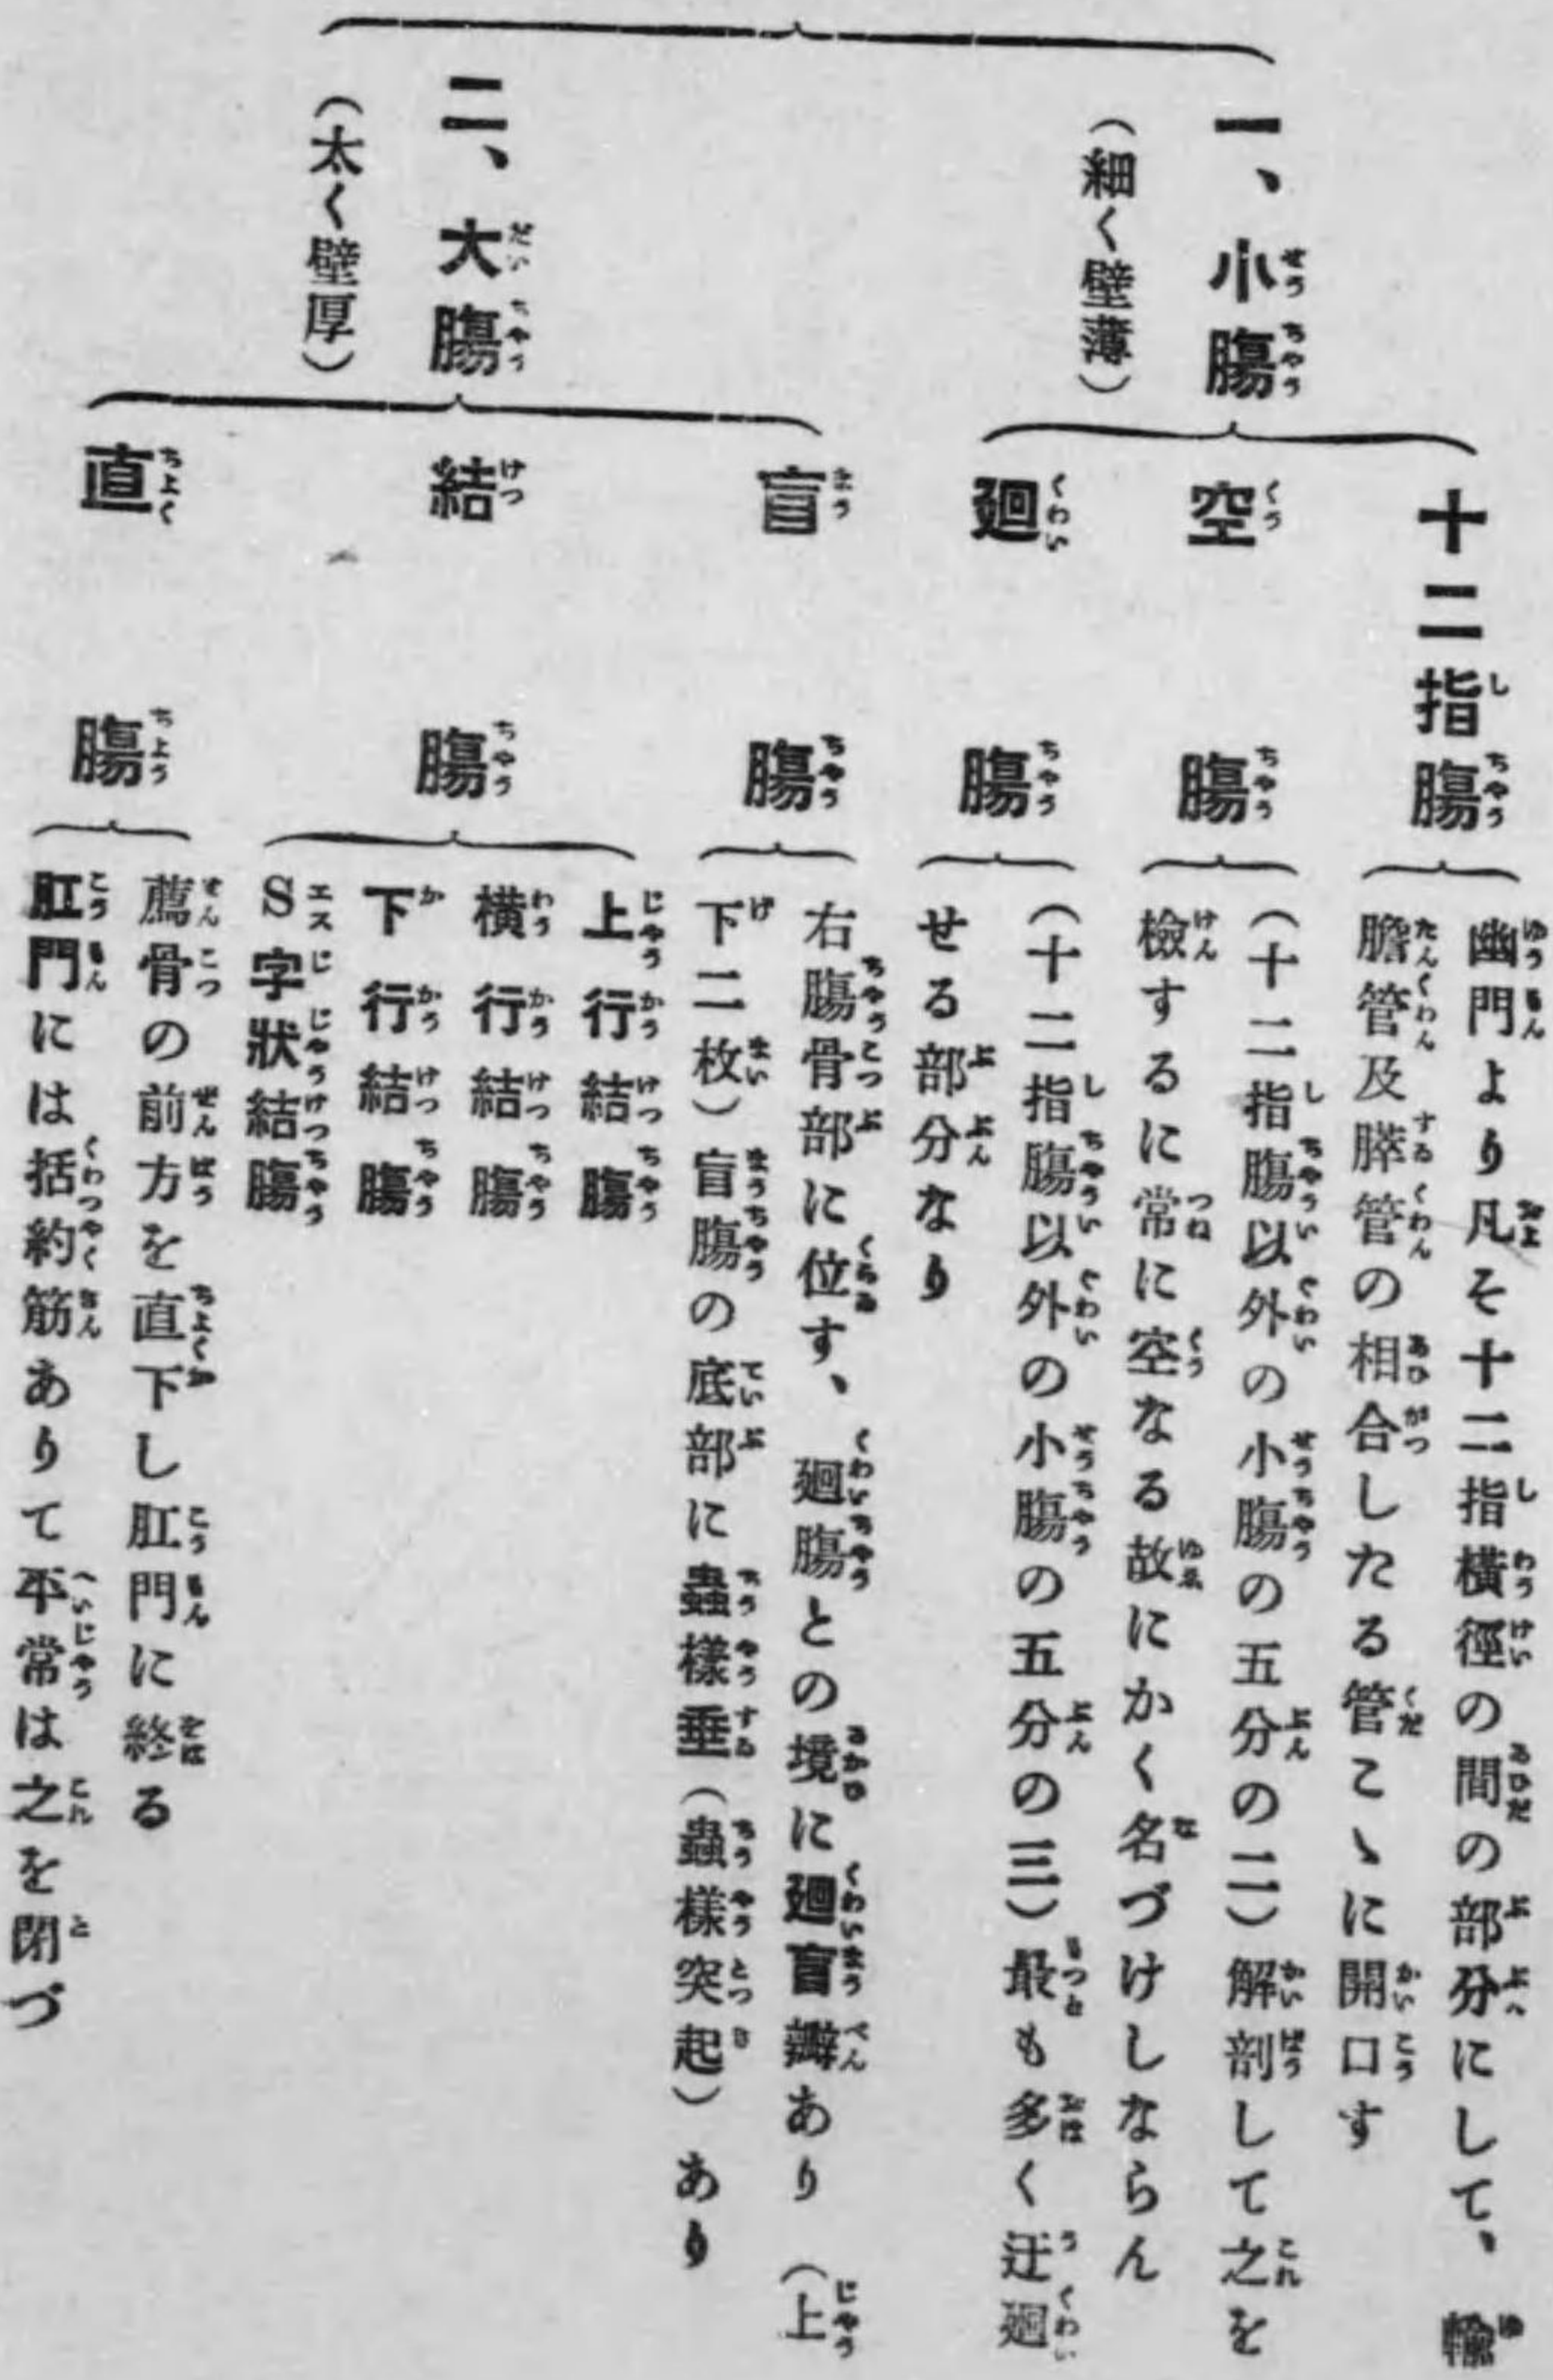 一、小腸
(細く壁薄)
十二指腸
幽門より凡そ十二指橫徑の間の部分にして、輸
膽管及膵管の相合したる管こゝに開口す
空腸
(十二指腸以外の小腸の五分の二)解剖して之を
檢するに常に空なる故にかく名づけしならん
廻腸
(十二指腸以外の小腸の五分の三)最も多く迂廻
せる部分なり
二、大腸
(太く壁厚)
盲腸
右腸骨部に位す、廻腸との境に廻盲瓣あり(上
下二枚)盲腸の底部に蟲樣垂(蟲樣突起)あり
結腸
上行結腸
橫行結腸
下行結腸
S字狀結腸
直腸
薦骨の前方を直下し肛門に終る
肛門には括約筋ありて平常は之を閉づ